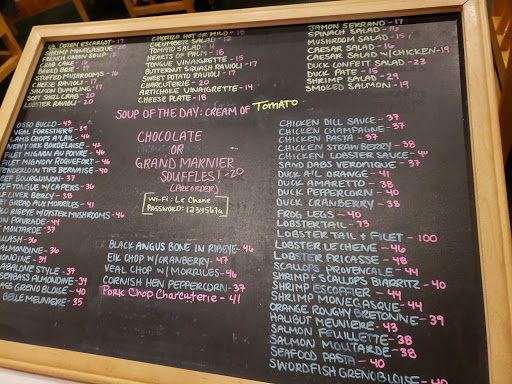 1/2 DOZEN ESCARGOT - 17
SHRIMP MONEGASQUE - 20
FRENCH ONION SOUP - 12
CRAB CAKE - 19
BAKED BRIE - 16
STUFFED MUSHROOMS - 16
CHEESE RAVIOLI - 17
SALMON DUMPLING - 17
SOFT SHELL CRAB - 20
LOBSTER RAVIOLI - 20
CHORIZO HOT OR MILD - 15
CUCUMBER SALAD - 12
TOMATO SALAD - 11
HEARTS OF PALM - 15
TONGUE VINAIGRETTE - 15
BUTTERNUT SQUASH RAVIOLI - 17
SWEET POTATO RAVIOLI - 17
CHARCUTERIE - 20
ARTICHOKE VINAIGRETTE - 14
CHEESE PLATE - 18
JAMON SERRANO - 17
SPINACH SALAD - 11
MUSHROOM SALAD - 15
CAESAR SALAD - 16
CAESAR SALAD W/CHICKEN - 19
DUCK CONFIT SALAD - 23
DUCK PATE - 15
SHRIMP SALAD - 29
SMOKED SALMON - 19
SOUP OF THE DAY: CREAM OF TOMATO
OSSO BUCCO - 49
VEAL FORESTIERE - 39
LAMB CHOPS A L'AIL - 46
NEW YORK BORDELAISE - 46
FILET MIGNON AU POIVRE - 46
FILET MIGNON ROQUEFORT - 46
TENDERLOIN TIPS BEARNAISE - 40
BEEF BOURGUIGNON - 37
BEEF TONGUE W/CAPERS - 36
BEEF LIVER BERCY - 38
GREAU AUX MORILLES - 41
RIBEYE W/OYSTER MUSHROOMS - 46
POIVRADE - 44
MOUTARDE - 37
- 36
ALMONDINE - 34
MONDINE - 34
ABALONE STYLE - 37
SEABASS ALMONDINE - 34
BASS GRENOBLOISE - 40
BELLE MEUNIERE - 35
CHOCOLATE
OR
GRAND MARNIER
SOUFFLES! - 20
(PREORDER)
Wi-Fi: Le Chene
PASSWORD: 1234567a
BLACK ANGUS BONE IN RIBEYE - 46
ELK CHOP W/CRANBERRY - 47
VEAL CHOP W/MORILLES - 46
CORNISH HEN PEPPERCORN - 37
PORK CHOP CHARCUTERIE - 41
CHICKEN DILL SAUCE - 37
CHICKEN CHAMPAGNE - 37
CHICKEN PASTA - 37
CHICKEN STRAWBERRY - 38
CHICKEN LOBSTER SAUCE - 40
SAND DABS VERONIQUE - 37
DUCK A'L ORANGE - 41
DUCK AMARETTO - 38
DUCK PEPPERCORN - 40
DUCK CRANBERRY - 38
FROG LEGS - 40
LOBSTER TAIL - 73
LOBSTER TAIL + FILET - 100
LOBSTER LE CHENE - 46
LOBSTER FRICASSE - 48
SCALLOPS PROVENCALE - 44
SHRIMP & SCALLOPS BIARRITZ - 40
SHRIMP ESCOFFIER - 44
SHRIMP MONEGASQUE - 44
ORANGE ROUGHY BRETONNE - 39
HALIBUT MEUNIERE - 43
SALMON FEUILLETTE - 38
SALMON MOUTARDE - 38
SEAFOOD PASTA - 40
SWORDFISH GRENOBLOISE - 40